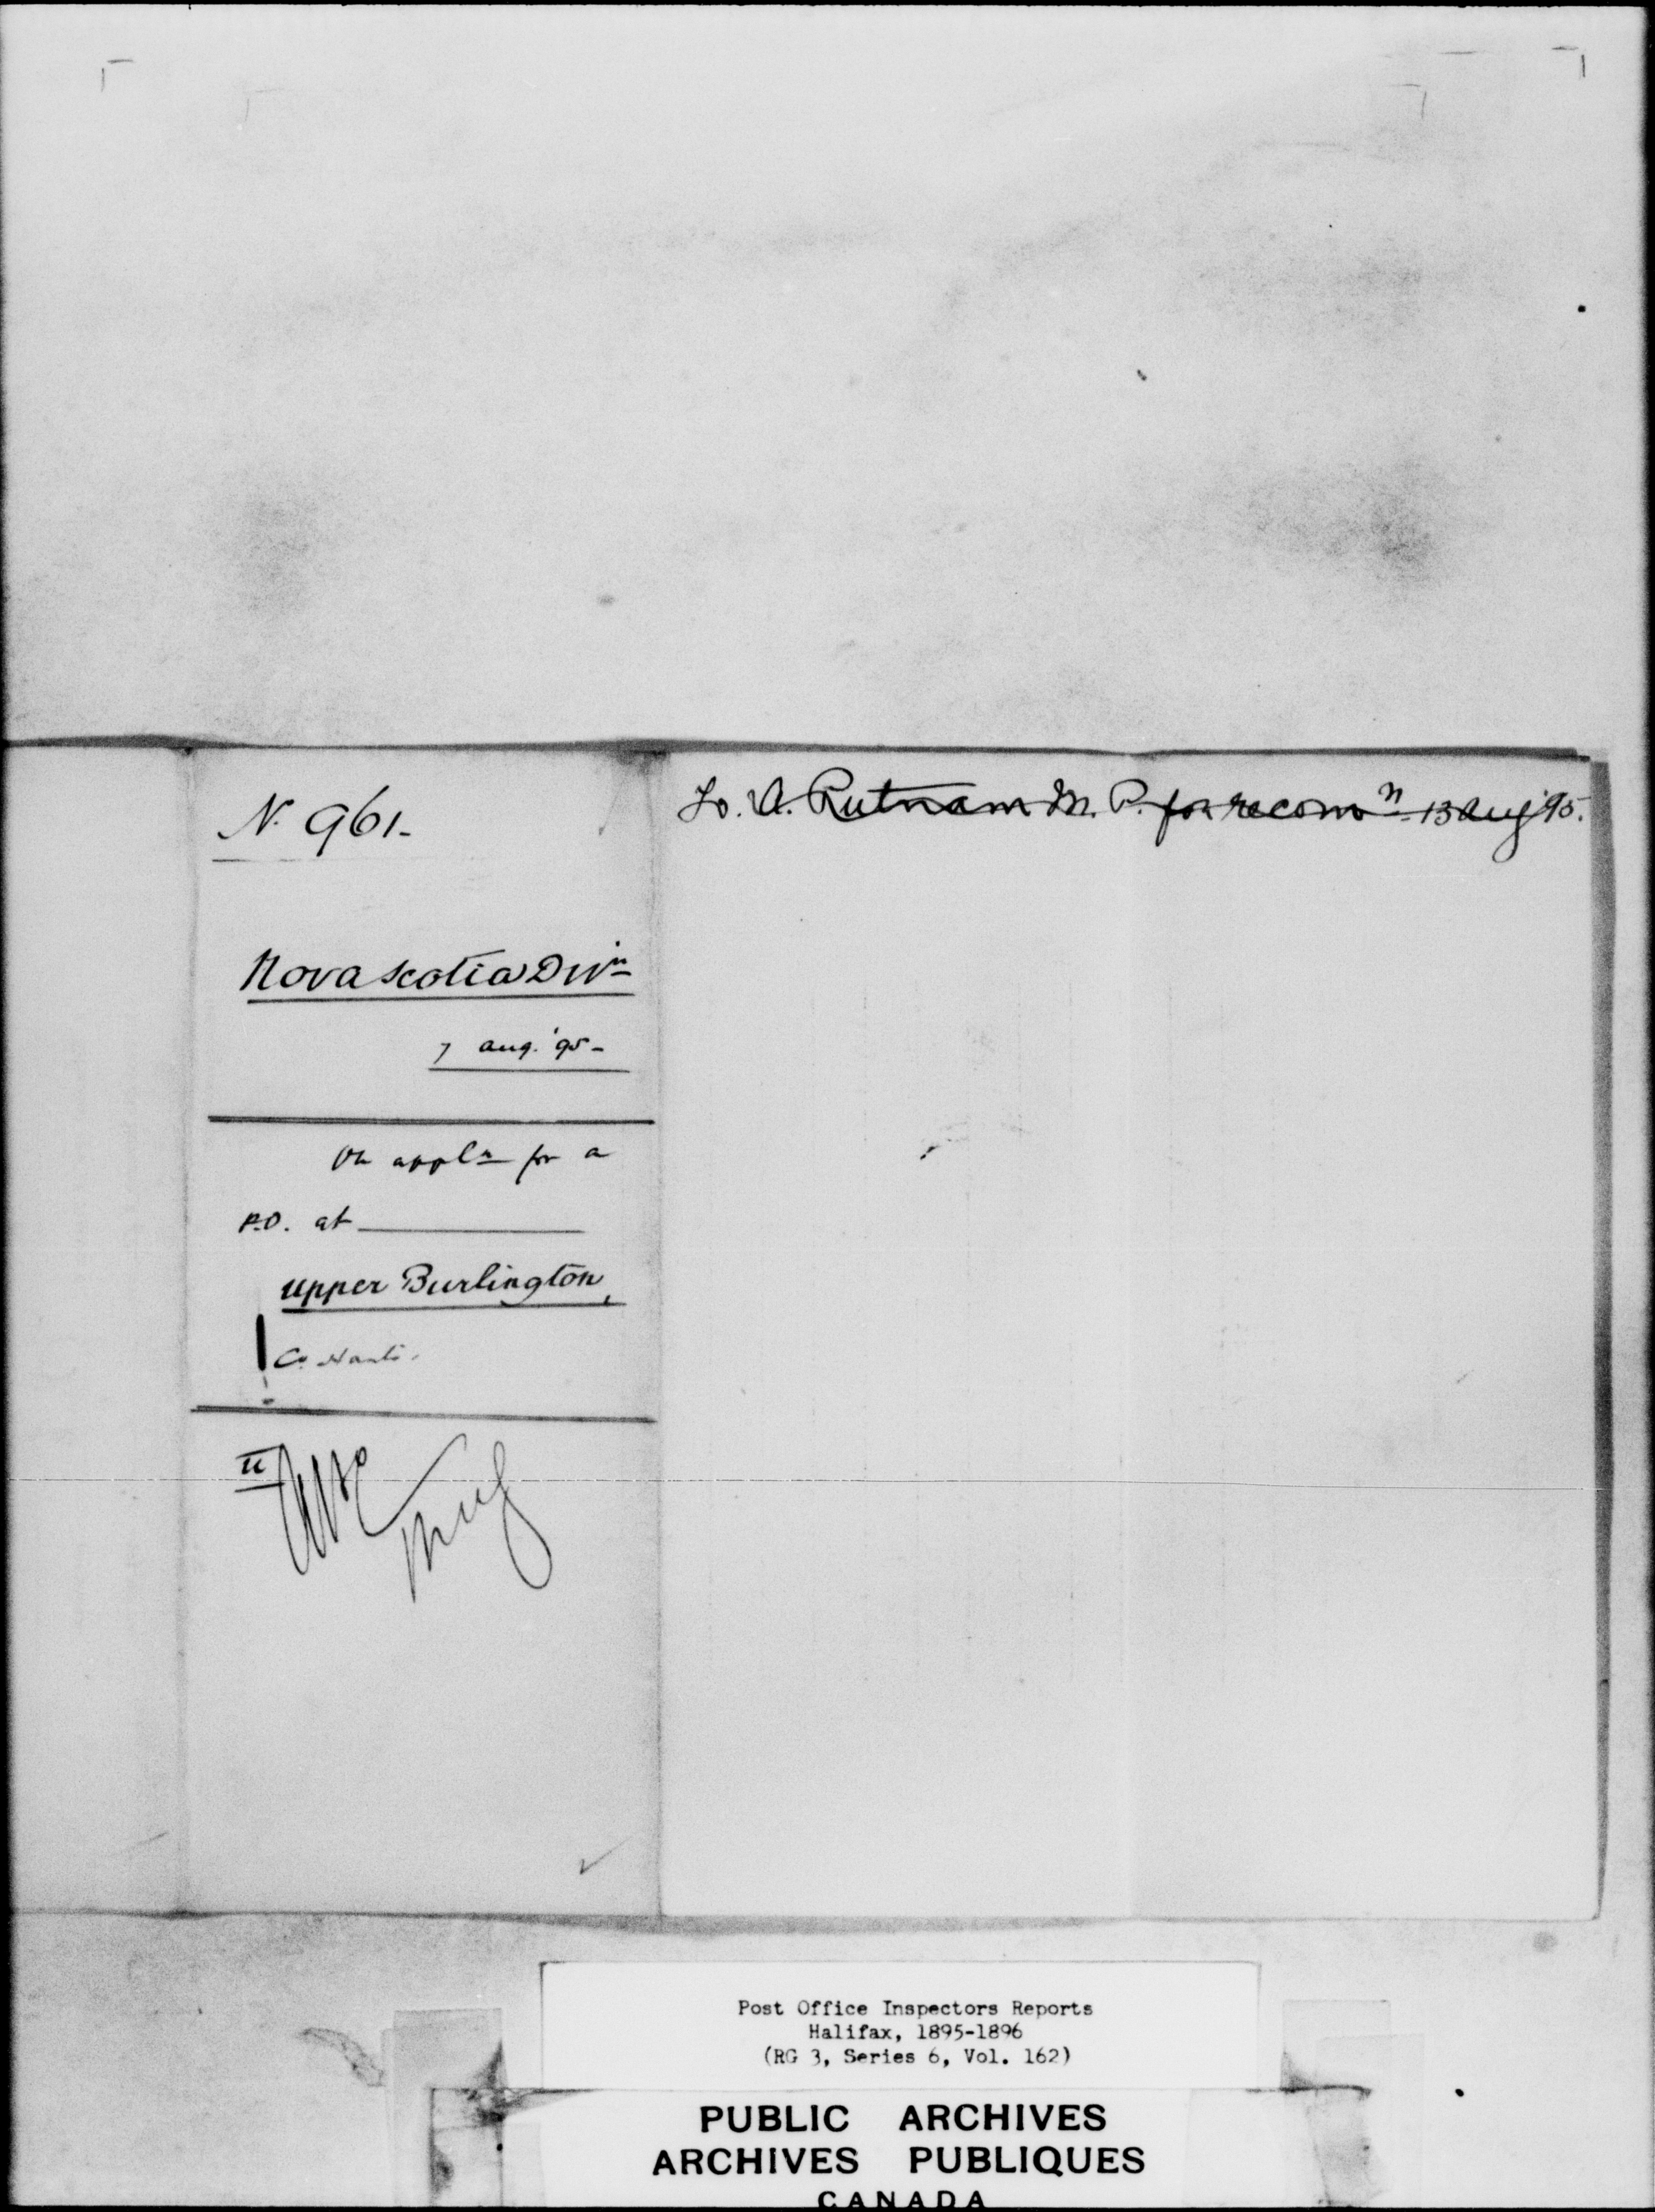 N. 961-
Nova Scotia Divn
7 Aug. '95-
On appln for a
P.O. at
Upper Burlington,
Co. Hants.
To. A. Putnam M.P. for recomn. 13 Aug '95.
Post Office Inspectors Reports
Halifax, 1895-1896
(RG 3, Series 6, Vol. 162)
PUBLIC ARCHIVES
ARCHIVES PUBLIQUES
CANADA